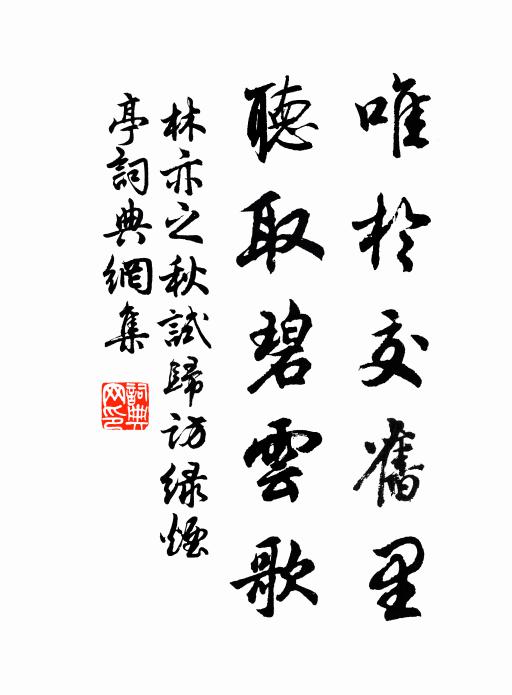 唯於交舊里
聽取碧雲歌
林亦之秋試歸访緑煙
亭詞典網集
詞典
网印